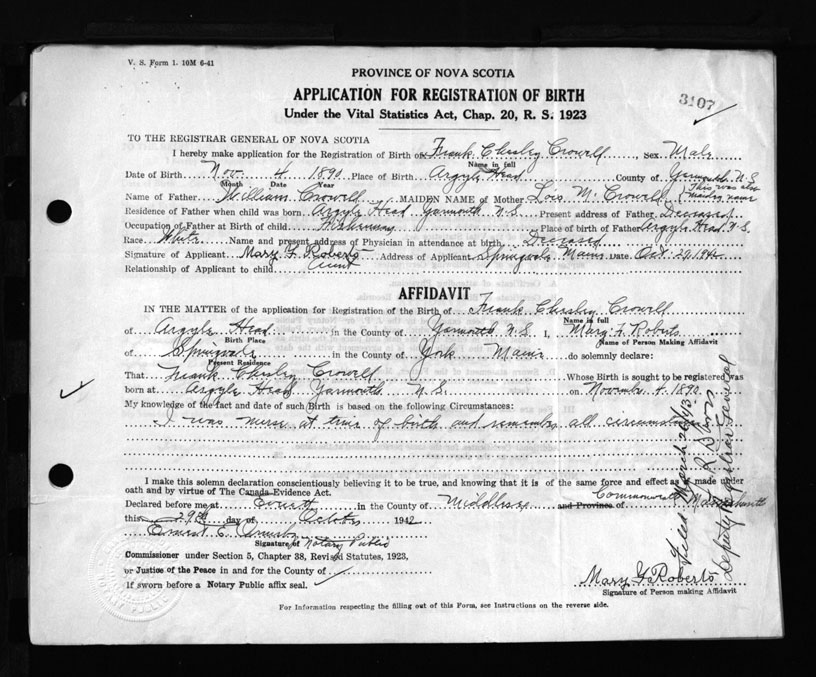 V. S. Form 1. 10M 6-41
PROVINCE OF NOVA SCOTIA
APPLICATION FOR REGISTRATION OF BIRTH
3107
Under the Vital Statistics Act, Chap. 20, R. S. 1923
TO THE REGISTRAR GENERAL OF NOVA SCOTIA
I hereby make application for the Registration of Birth of Frank Chesley Crowell, Sex Male
Name in full
Date of Birth Nov. 4 1890 Place of Birth Argyle Head County of Yarmouth N.S
Month Date Year
This was also
maiden name
Name of Father William Crowell, MAIDEN NAME of Mother Lois M. Crowell
Residence of Father when child was born Argyle Head Yarmouth N.S. Present address of Father Deceased
Occupation of Father at Birth of child Fisherman Place of birth of Father Argyle Head N.S.
Race White Name and present address of Physician in attendance at birth Deceased
Signature of Applicant Mary F. Roberts Address of Applicant Springvale Maine Date Oct 29 1942
Relationship of Applicant to child Aunt
AFFIDAVIT
IN THE MATTER of the application for Registration of the Birth of Frank Chesley Crowell
Name in full
of Argyle Head in the County of Yarmouth N.S. I, Mary F. Roberts
Birth Place Name of Person Making Affidavit
of Springvale in the County of York Maine do solemnly declare:
Present Residence
That Frank Chesley Crowell Whose Birth is sought to be registered was
born at Argyle Head Yarmouth N.S. on November 4 1890
My knowledge of the fact and date of such Birth is based on the following Circumstances:
I was nurse at time of birth and remember all circumstances
I make this solemn declaration conscientiously believing it to be true, and knowing that it is of the same force and effect as if made under
oath and by virtue of The Canada Evidence Act.
Commonwealth Massachusetts
Declared before me at Everett in the County of Middlesex and Province of
this 29th day of October 1942
Ernest E. Ormsby
Signature of Notary Public
Commissioner under Section 5, Chapter 38, Revised Statutes, 1923,
or Justice of the Peace in and for the County of
If sworn before a Notary Public affix seal.
Mary F. Roberts
Signature of Person making Affidavit
For Information respecting the filling out of this Form, see Instructions on the reverse side.
Filed March
Deputy Registrar General